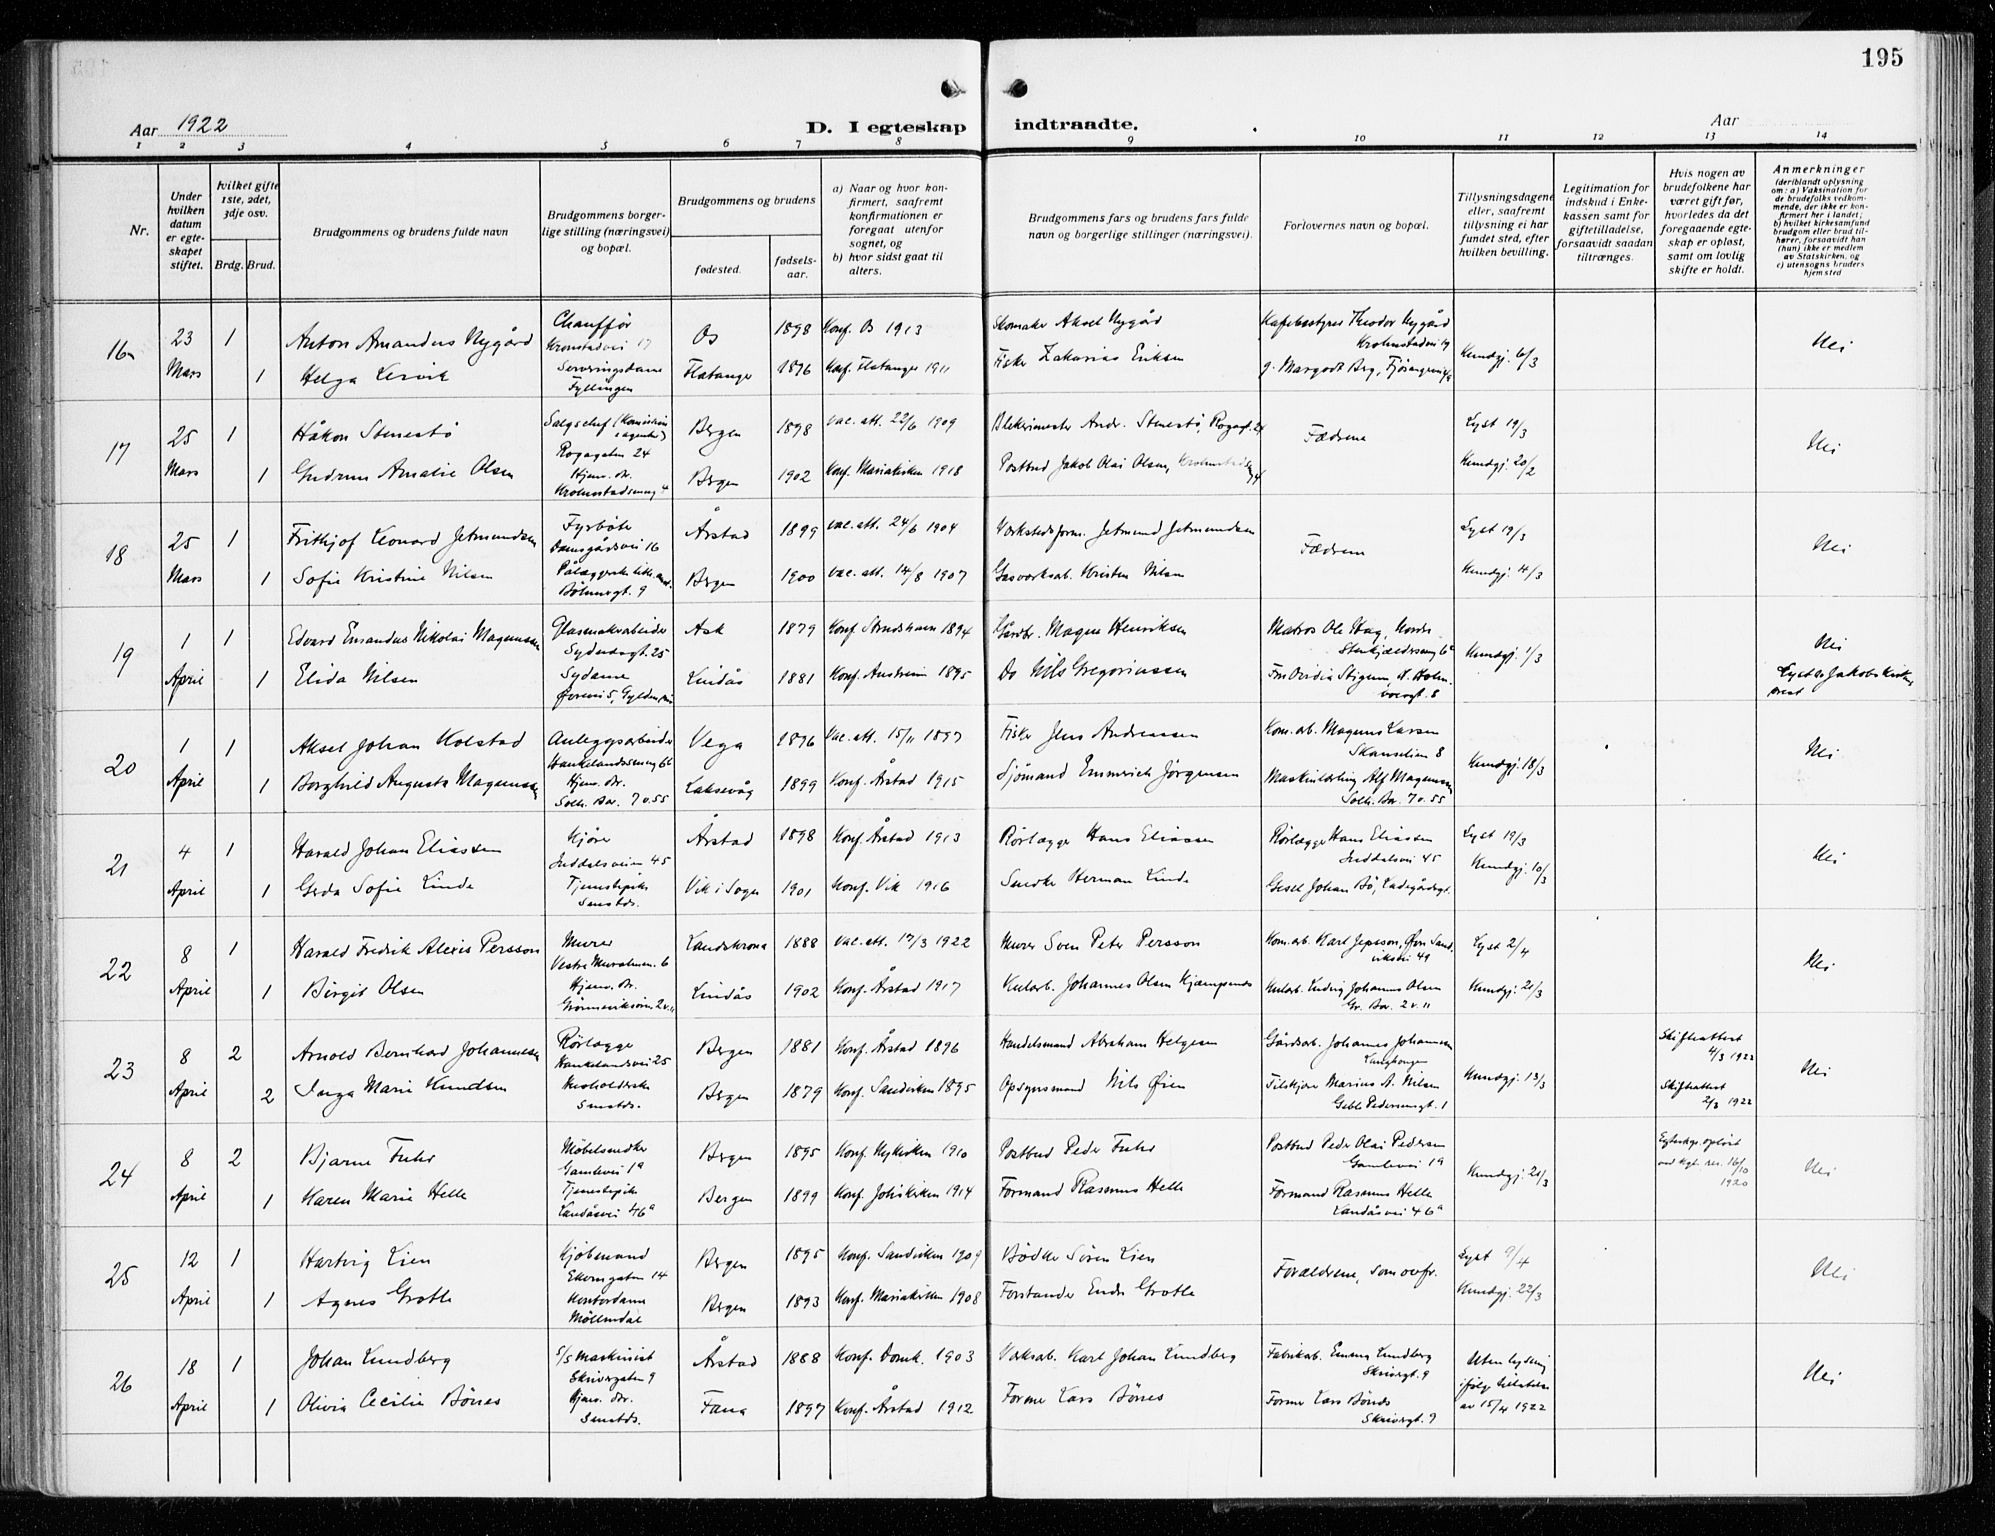 195
Aar 1922
D. I egteskap indtraadte.
Aar
1 2 3 4 5 6 7 8 9 10 11 12 13 14
Nr.
Under hvilken datum er egteskapet stiftet.
hvilket gifte 1ste, 2det, 3dje osv.
Brdg. Brud.
Brudgommens og brudens fulde navn
Brudgommens borgerlige stilling (næringsvei) og bopæl.
Brudgommens og brudens
fødested. fødselsaar.
a) Naar og hvor konfirmert, saafremt konfirmationen er foregaat utenfor sognet, og
b) hvor sidst gaat til alters.
Brudgommens fars og brudens fars fulde navn og borgerlige stillinger (næringsvei).
Forlovernes navn og bopæl.
Tillysningsdagene eller, saafremt tillysning ei har fundet sted, efter hvilken bevilling.
Legitimation for indskud i Enkekassen samt for giftetilladelse, forsaavidt saadan tiltrænges.
Hvis nogen av brudefolkene har været gift før, hvorledes da det foregaaende egteskap er opløst, samt om lovlig skifte er holdt.
Anmerkninger (deriblandt oplysning om: a) Vaksination for de brudefolks vedkommende, der ikke er konfirmert her i landet; b) hvilket kirkesamfund brudgom eller brud tilhører, forsaavidt han (hun) ikke er medlem av Statskirken, og c) utensogns bruders hjemsted
16 23 Mars 1 Anton Amandus Nygård Chauffør Kronstadvei 17 Os 1898 Konf. Os 1913 Skomaker Aksel Nygård Theodor Nygård Nei
1 Helga Lervik Serveringsdame Fyllingen Flatanger 1896 Konf. Flatanger 1911 Fisker Zakarias Eriksen Kundgj. 6/3
17 25 Mars 1 Håkon Stenestø Salgschef Rogagaten 24 Bergen 1898 vac. att. 22/6 1909 Andr. Stenestø, Rogagt. 24 Fædrene Lyst 19/3 Nei
1 Gudrun Amalie Olsen Hjem. dr. Bergen 1902 Konf. Mariakirken 1918 Postbud Jakob Olai Olsen, Kundgj. 20/2
18 25 Mars 1 Frithjof Leonard Jetmundsen Fyrbøter Damsgårdsvei 16 Årstad 1899 vac. att. 24/6 1904 Verkstedsform. Jetmund Jetmundsen Fædrene Lyst 19/3 Nei
1 Sofie Kristine Nilsen Bergen 1900 vac. att. 14/8 1907 Gasverksarb. Kristen Nilsen Kundgj. 4/3
19 1 April 1 Edvard Emandus Nikolai Magnussen Sydnesgt. 25 Ask 1879 Konf. 1894 Gårdbr. Magne Henriksen Matros Ole Hag, Kundgj. 1/3 Nei
1 Elida Nilsen Sydame Lindås 1881 Konf. Austrheim 1895 Do Nils Gregoriussen Lyst av Jakobs Kirkes prest
20 1 April 1 Aksel Johan Kolstad Anleggsarbeider Vega 1896 Vac. att. 15/11 1897 Fisker Jens Andreassen Kom. arb. Magnus Larsen Skanselien 8 Kundgj. 18/3 Nei
1 Borghild Augusta Magnussen Hjem. dr. Solh. Bar. 7 v. 55 Laksevåg 1899 Konf. Årstad 1915 Sjømand Emmerich Jørgensen Alf Magnussen Solh. Bar. 7 v. 55
21 4 April 1 Harald Johan Eliassen Kjører Inddalsveien 45 Årstad 1898 Konf. Årstad 1913 Rørlægger Hans Eliassen Rørlægger Hans Eliassen Inddalsvei 45 Lyst 19/3 Nei
1 Gerda Sofie Linde Tjenestepike Smstds. Vik i Sogn 1901 Konf. Vik 1916 Snedker Herman Linde Gesel Johan Bø, Ladegårdsgt. Kundgj. 10/3
22 8 April 1 Harald Fredrik Alexis Persson Murer Landskrona 1888 vac. att. 17/3 1922 Murer Sven Peter Persson Kom. arb. Karl Jepsson, Øvr. Sandviksvei 49 Lyst 2/4 Nei
1 Birgit Olsen Hjem. dr. Lindås 1902 Konf. Årstad 1917 Kularb. Johannes Olsen Kularb. Ludvig Johannes Olsen Gr. Bar. 2 v. 11 Kundgj. 21/3
23 8 April 2 Arnold Bernhard Johannesen Rørlægger Haukelandsvei 25 Bergen 1881 Konf. Årstad 1896 Handelsmand Abraham Helgesen Gårdsarb. Johannes Johannesen Kundgj. 13/3 Skifteattest 4/3 1922 Nei
2 Inga Marie Knudsen Husholderske Smstds. Bergen 1879 Konf. Sandviken 1895 Opsynsmand Nils Øien Marius A. Nilsen Geble Pedersensgt. 1 Skifteattest 2/3 1922
24 8 April 2 Bjarne Fuhr Møbelsnedker Gamlevei 1a Bergen 1895 Konf. Nykirken 1910 Postbud Peder Fuhr Postbud Peder Olai Pedersen Gamlevei 1a Kundgj. 21/3 Egteskap opløst ved kgl. res. 16/10 1920 Nei
1 Karen Marie Helle Tjenestepike Landåsvei 46a Bergen 1899 Konf. Johskirken 1914 Formand Rasmus Helle Formand Rasmus Helle Landåsvei 46a
25 12 April 1 Hartvig Lien Kjøbmand Ekerngaten 14 Bergen 1895 Konf. Sandviken 1909 Bødker Søren Lien Forældrene, som ovfr. Lyst 9/4 Nei
1 Agnes Grotle Kontordame Møllendal Bergen 1893 Konf. Mariakirken 1908 Forstander Endre Grotle Kundgj. 22/3
26 18 April 1 Johan Lundberg S/S Maskinist Skrivergaten 9 Årstad 1888 Konf. Domk. 1903 Verksarb. Karl Johan Lundberg Fabrikarb. Emma Lundberg Skrivergt. 9 Uten lysning ifølge tilladelse av 15/4 1922 Nei
1 Olivia Cecilie Bønes Hjem. dr. Smstds. Fana 1897 Konf. Årstad 1912 Former Lars Bønes Former Lars Bønes Skrivergt. 9